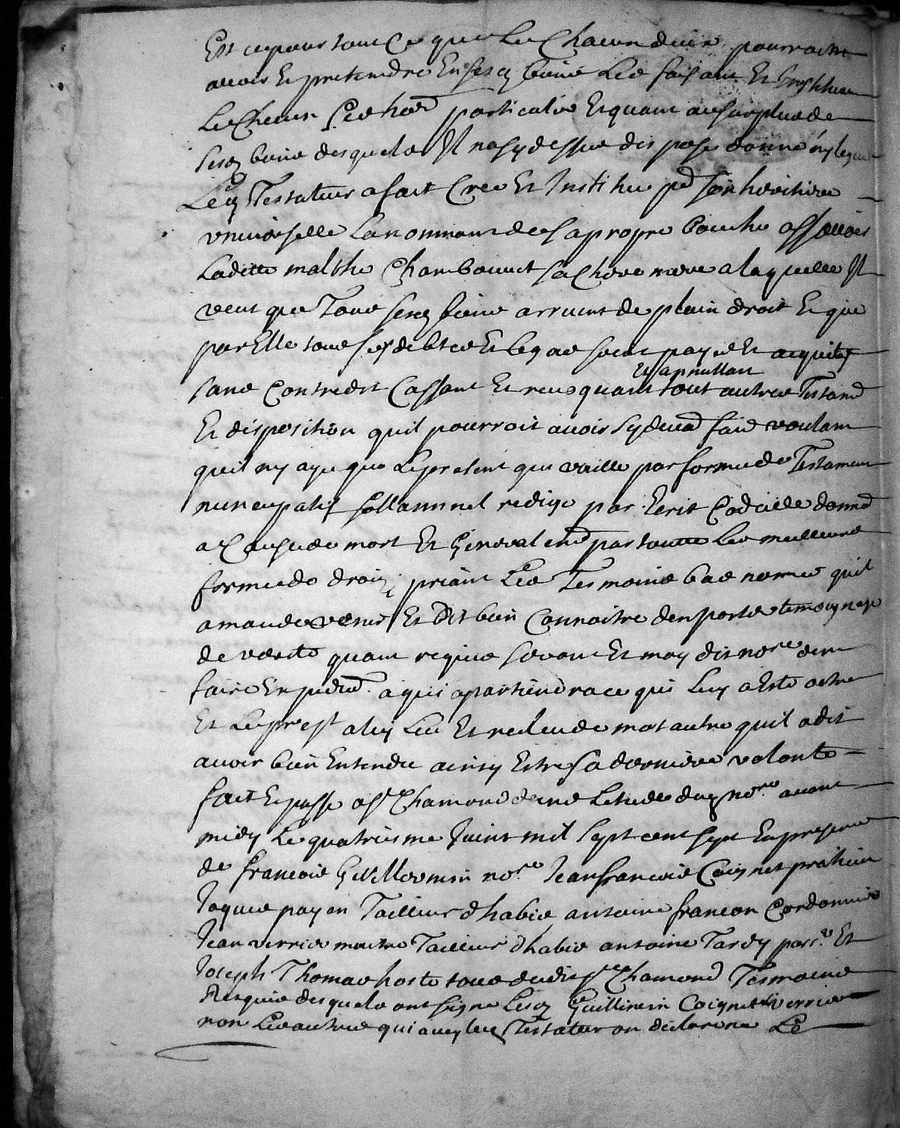 Est ce pour tout ce que Le Chacun deux pourroient
avoir Et pretendre En sesd biens Les faisant Et Instituant
Les heritiers particuliers Et quant au surplus de
sesd biens desquels Il na cy dessus dispose donné ny legué
Led Testateur a fait Cree Et Institue pr son heritiere
universelle La nommant de sa propre bouche assavoir
Laditte malthe Chambouvet sa chere mere a laquelle Il
veut que Tous sesd biens arrivent de plain droit Et que
par Elle tous ses debtes Et legas soient payes Et acquites
Et apnullant
sans Contredit Cassant Et revoquant tout autres Testand
Et disposition quil pourroit avoir cy devd faid voulant
quil ny aye que Le present qui vaille par forme de Testament
nuncupatif sollannel redige par Ecrit Codicille donnd
a Cause de mort Et General end par toutte Les meilleures
formes de droit priant Les Tesmoins bas nomes quil
a mande venir Et dit bien Connoitre den porter temoignage
de verite quant requis seront Et moy dit nore den
faire Expedid a qui apartiendra ce qui Luy a Este octre
Et Le prest a luy Leu Et releu de mot autre quil a dit
avoir bien Entendu ainsy Estre sa derniere volonte
fait Et passe a St Chamond dans Letude dud nore avant
midy Le quatriesme Juint mil sept cent sept En presence
de francois Guillermin nore Jean francois Coignet praticien
Jaques payen Tailleur dhabis antoine francon Cordonnier
Jean verrier maitre Tailleur dhabis antoine Tardy passr Et
Joseph Thomas hoste tous dudit St Chamond Tesmoins
Requis desquels ont signe Lesd Guillermin Coignet verrier
non Les autres qui avec led Testateur on declare Le